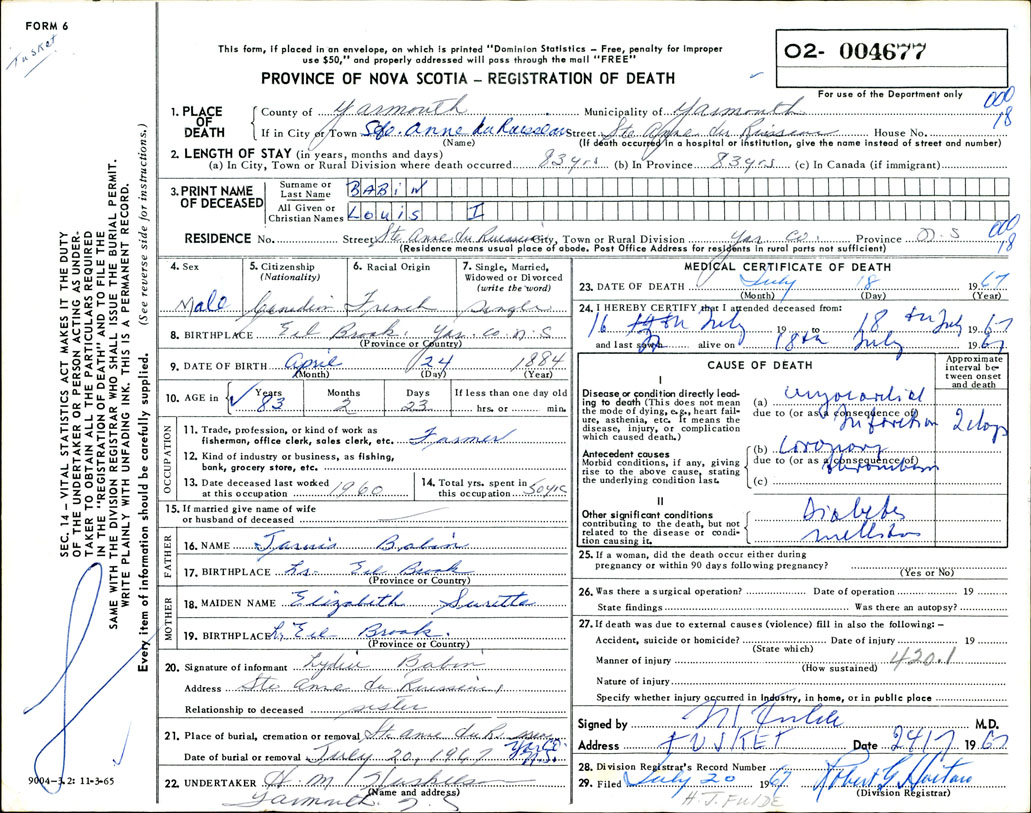 FORM 6
Tusket
This form, if placed in an envelope, on which is printed "Dominion Statistics – Free, penalty for improper
use $50," and properly addressed will pass through the mail "FREE"
O2- 004677
PROVINCE OF NOVA SCOTIA – REGISTRATION OF DEATH
For use of the Department only
000
18
1. PLACE OF DEATH
County of Yarmouth Municipality of Yarmouth
If in City or Town Ste. Anne du Ruisseau Street Ste Anne du Ruisseau House No.
(Name) (If death occurred in a hospital or institution, give the name instead of street and number)
2. LENGTH OF STAY (in years, months and days)
(a) In City, Town or Rural Division where death occurred 83 yrs (b) In Province 83 yrs (c) In Canada (if immigrant)
3. PRINT NAME OF DECEASED
Surname or Last Name BABIN
All Given or Christian Names LOUIS I
RESIDENCE No. Street Ste Anne du Ruisseau City, Town or Rural Division Yar Co. Province N.S
000
18
(Residence means usual place of abode. Post Office Address for residents in rural parts not sufficient)
4. Sex
Male
5. Citizenship
(Nationality)
6. Racial Origin
French
7. Single, Married,
Widowed or Divorced
(write the word)
Single
8. BIRTHPLACE Eel Brook Yar. Co. N.S
(Province or Country)
9. DATE OF BIRTH April 24 1884
(Month) (Day) (Year)
10. AGE in
Years 83
Months 2
Days 23
If less than one day old
hrs. or min.
OCCUPATION
11. Trade, profession, or kind of work as
fisherman, office clerk, sales clerk, etc. Farmer
12. Kind of industry or business, as fishing,
bank, grocery store, etc.
13. Date deceased last worked
at this occupation 1960
14. Total yrs. spent in
this occupation 50 yrs
15. If married give name of wife
or husband of deceased
FATHER
16. NAME Babin
17. BIRTHPLACE Eel Brook
(Province or Country)
MOTHER
18. MAIDEN NAME Elizabeth Surette
19. BIRTHPLACE Eel Brook.
(Province or Country)
20. Signature of informant Lydie Babin
Address Ste Anne du Ruisseau
Relationship to deceased sister
21. Place of burial, cremation or removal St Anne du R.
Yar Co. N.S.
Date of burial or removal July 20, 1967
22. UNDERTAKER H. M.
(Name and address)
Yarmouth N S
MEDICAL CERTIFICATE OF DEATH
23. DATE OF DEATH July 18 1967
(Month) (Day) (Year)
24. I HEREBY CERTIFY that I attended deceased from:
16 July 19 to 18 th July 1967
and last saw h alive on 18th July 1967
CAUSE OF DEATH
Approximate
interval be-
tween onset
and death
I
Disease or condition directly lead-
ing to death (This does not mean
the mode of dying, e.g., heart fail-
ure, asthenia, etc. It means the
disease, injury, or complication
which caused death.)
(a) Myocardial
due to (or as a consequence of)
Infarction 2 days
Antecedent causes
Morbid conditions, if any, giving
rise to the above cause, stating
the underlying condition last.
(b) Coronary
due to (or as a consequence of)
thrombosis
(c)
II
Other significant conditions
contributing to the death, but not
related to the disease or condi-
tion causing it.
Diabetes
mellitus
25. If a woman, did the death occur either during
pregnancy or within 90 days following pregnancy?
(Yes or No)
26. Was there a surgical operation? Date of operation 19
State findings Was there an autopsy?
27. If death was due to external causes (violence) fill in also the following: –
Accident, suicide or homicide? Date of injury 19
(State which)
Manner of injury 420.1
(How sustained)
Nature of injury
Specify whether injury occurred in Industry, in home, or in public place
Signed by Fulde M.D.
Address TUSKET Date 24/7 1967
28. Division Registrar's Record Number
29. Filed July 20 1967 Robert G Horton
(Division Registrar)
H. J. FULDE
SEC. 14 – VITAL STATISTICS ACT MAKES IT THE DUTY
OF THE UNDERTAKER OR PERSON ACTING AS UNDER-
TAKER TO OBTAIN ALL THE PARTICULARS REQUIRED
IN THE "REGISTRATION OF DEATH" AND TO FILE THE
SAME WITH THE DIVISION REGISTRAR WHO SHALL ISSUE THE BURIAL PERMIT.
WRITE PLAINLY WITH UNFADING INK. THIS IS A PERMANENT RECORD.
Every item of information should be carefully supplied. (See reverse side for instructions.)
9004–3.2: 11-3-65